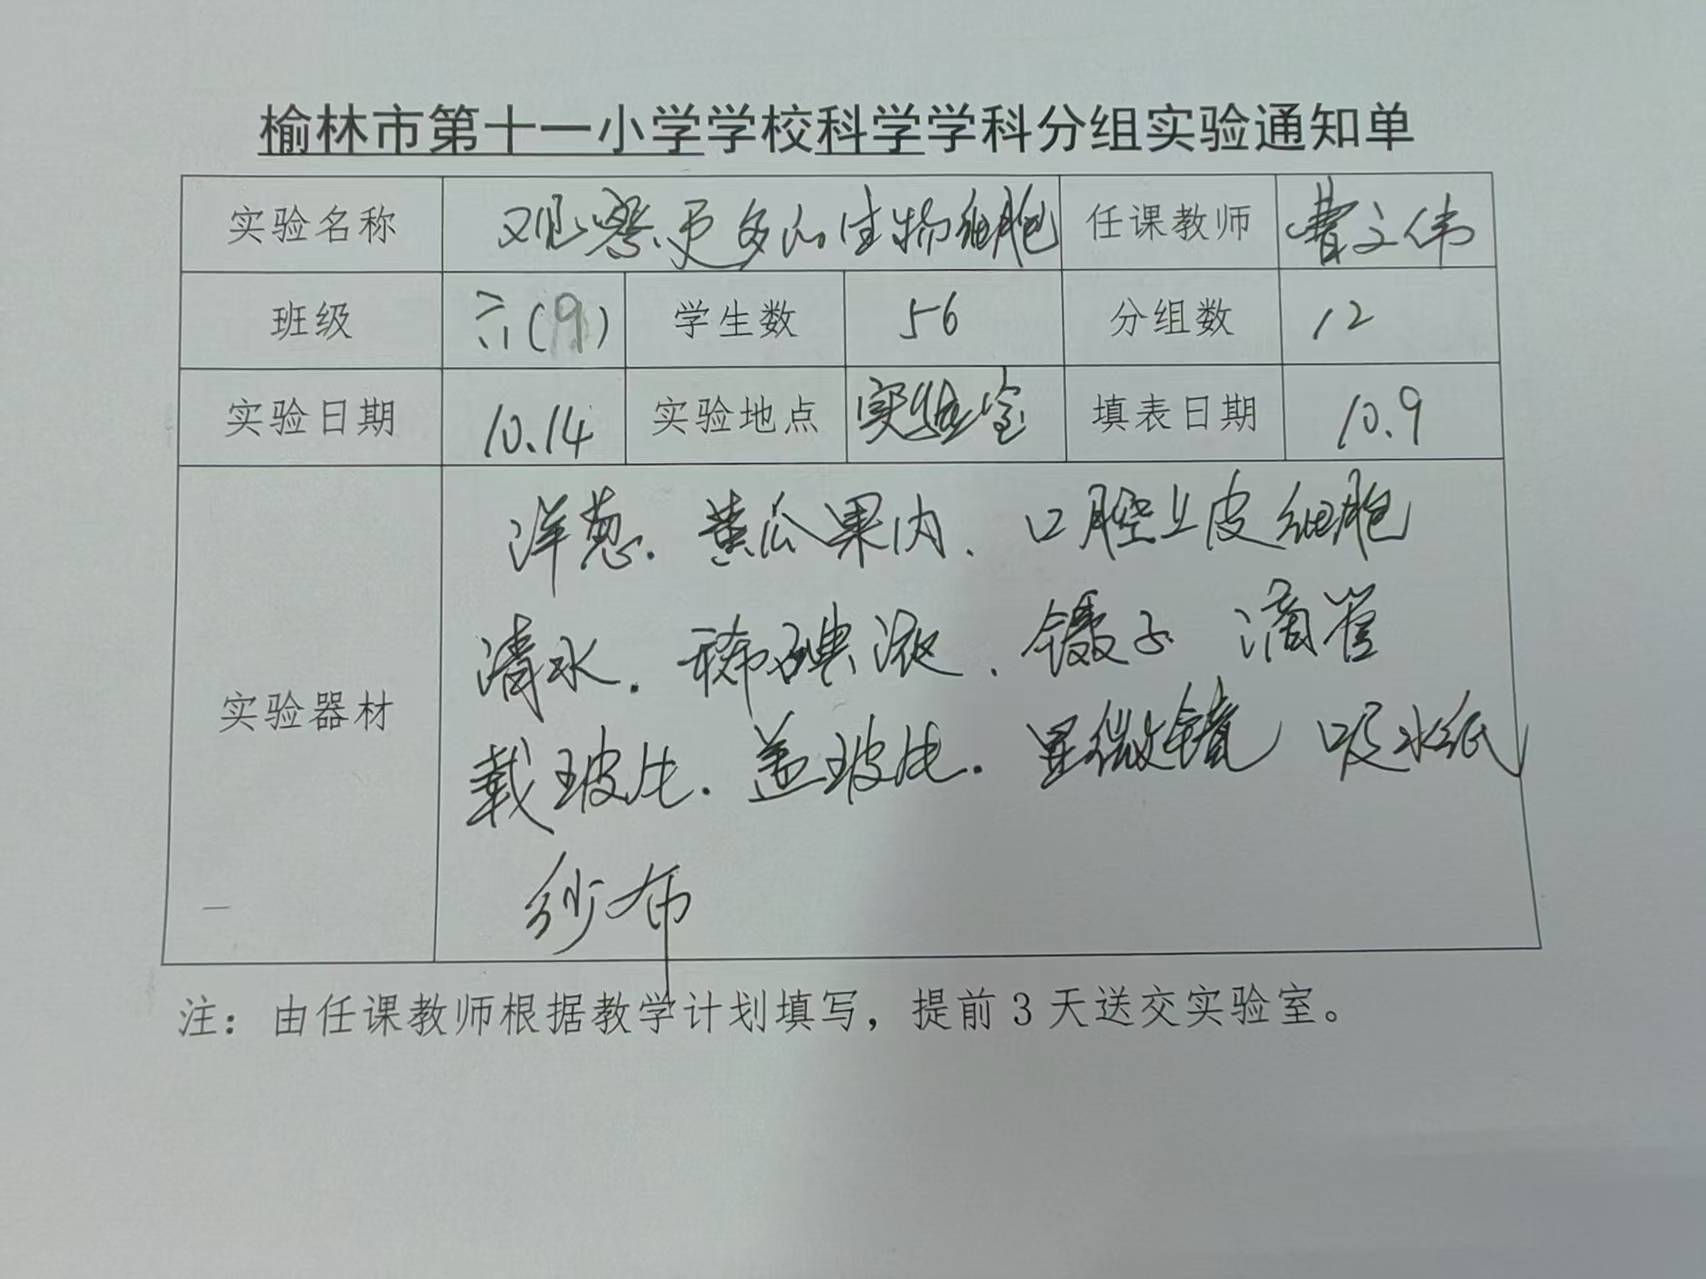 榆林市第十一小学学校科学学科分组实验通知单
实验名称 观察更多的生物细胞 任课教师 曹文伟
班级 六(9) 学生数 56 分组数 12
实验日期 10.14 实验地点 实验室 填表日期 10.9
实验器材
洋葱.黄瓜果肉、口腔上皮细胞
清水.稀碘液、镊子 滴管
载玻片.盖玻片.显微镜 吸水纸
纱布
注：由任课教师根据教学计划填写，提前3天送交实验室。